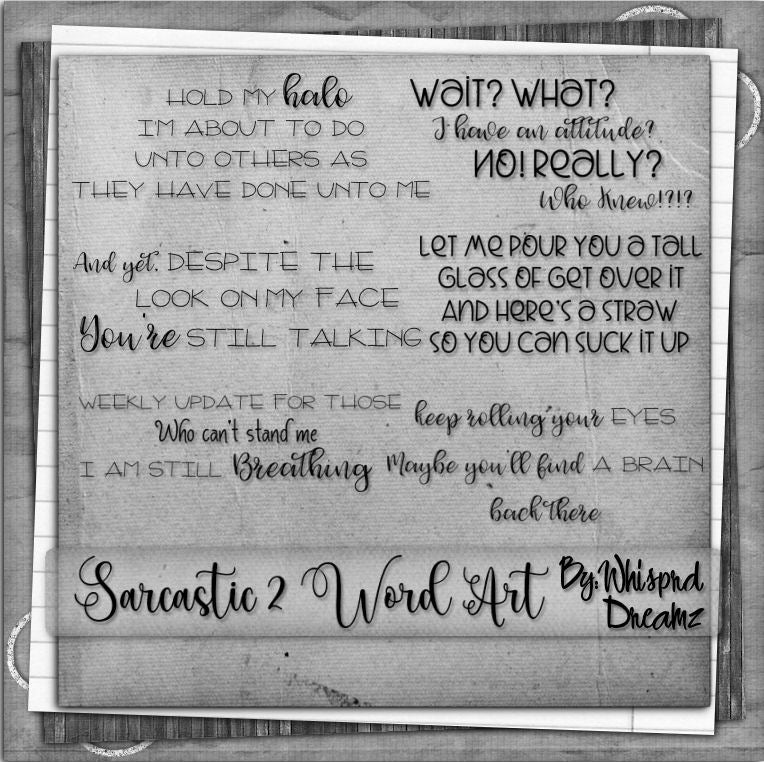 HOLD MY halo
I'M ABOUT TO DO
UNTO OTHERS AS
THEY HAVE DONE UNTO ME
Wait? What?
I have an attitude?
NO! Really?
Who Knew!?!?
And yet, DESPITE THE
LOOK ON MY FACE
You're STILL TALKING
Let me pour you a tall
glass of get over it
and here's a straw
so you can suck it up
WEEKLY UPDATE FOR THOSE
Who can't stand me
I AM STILL Breathing
keep rolling your EYES
Maybe you'll find A BRAIN
back there
Sarcastic 2 Word Art
By: Whisprd
Dreamz